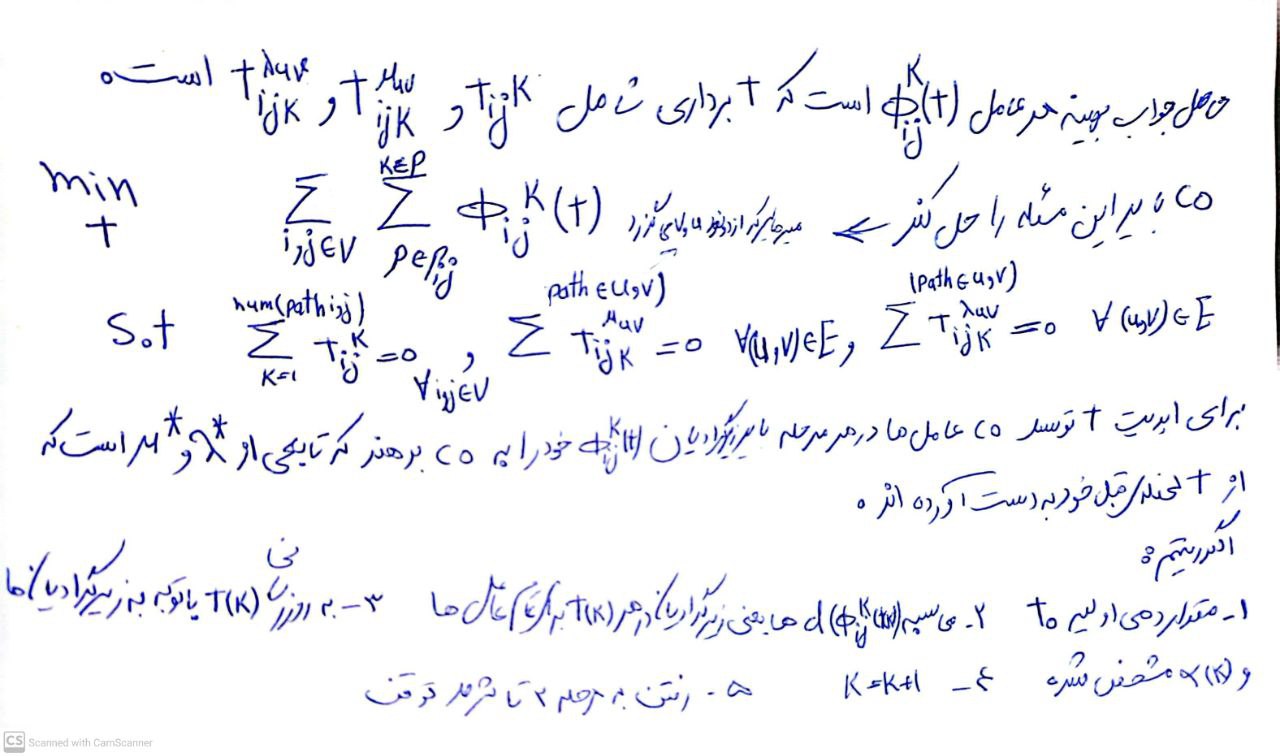 حاصل جواب بهینه هر عامل φ_{ij}^{K}(t) است که t برداری شامل t_{ij}^{K} و t_{ijK}^{μuv} و t_{ijK}^{λuv} است.
CO باید این مسئله را حل کند ← مسیرهایی که از دو نود u و v می‌گذرد
min_{t} Σ_{i,j∈V} Σ_{p∈P_{ij}}^{K∈P} φ_{ij}^{K}(t)
S.t Σ_{K=1}^{num(path i,j)} t_{ij}^{K} = 0 ∀i,j∈V , Σ^{path∈u,v)} t_{ijK}^{μuv} = 0 ∀(u,v)∈E , Σ^{(path∈u,v)} t_{ijK}^{λuv} = 0 ∀(u,v)∈E
برای آپدیت t توسط CO عامل‌ها در هر مرحله باید زیرگرادیان φ_{ij}^{K}(t) خود را به CO بدهند که تابعی از λ* و μ* است که
از t لحظه‌ی قبل خود به دست آورده اند.
الگوریتم:
۱- مقداردهی اولیه t₀ ۲- محاسبه d(φ_{ij}^{K}(t(K))) ها یعنی زیرگرادیان در هر t(K) به ازای تمام عامل ها ۳- به روز رسانی t(K) با توجه به زیرگرادیان ها
و α(K) مشخص شده ۴- K=K+1 ۵- رفتن به مرحله ۲ تا شرط توقف
CS Scanned with CamScanner